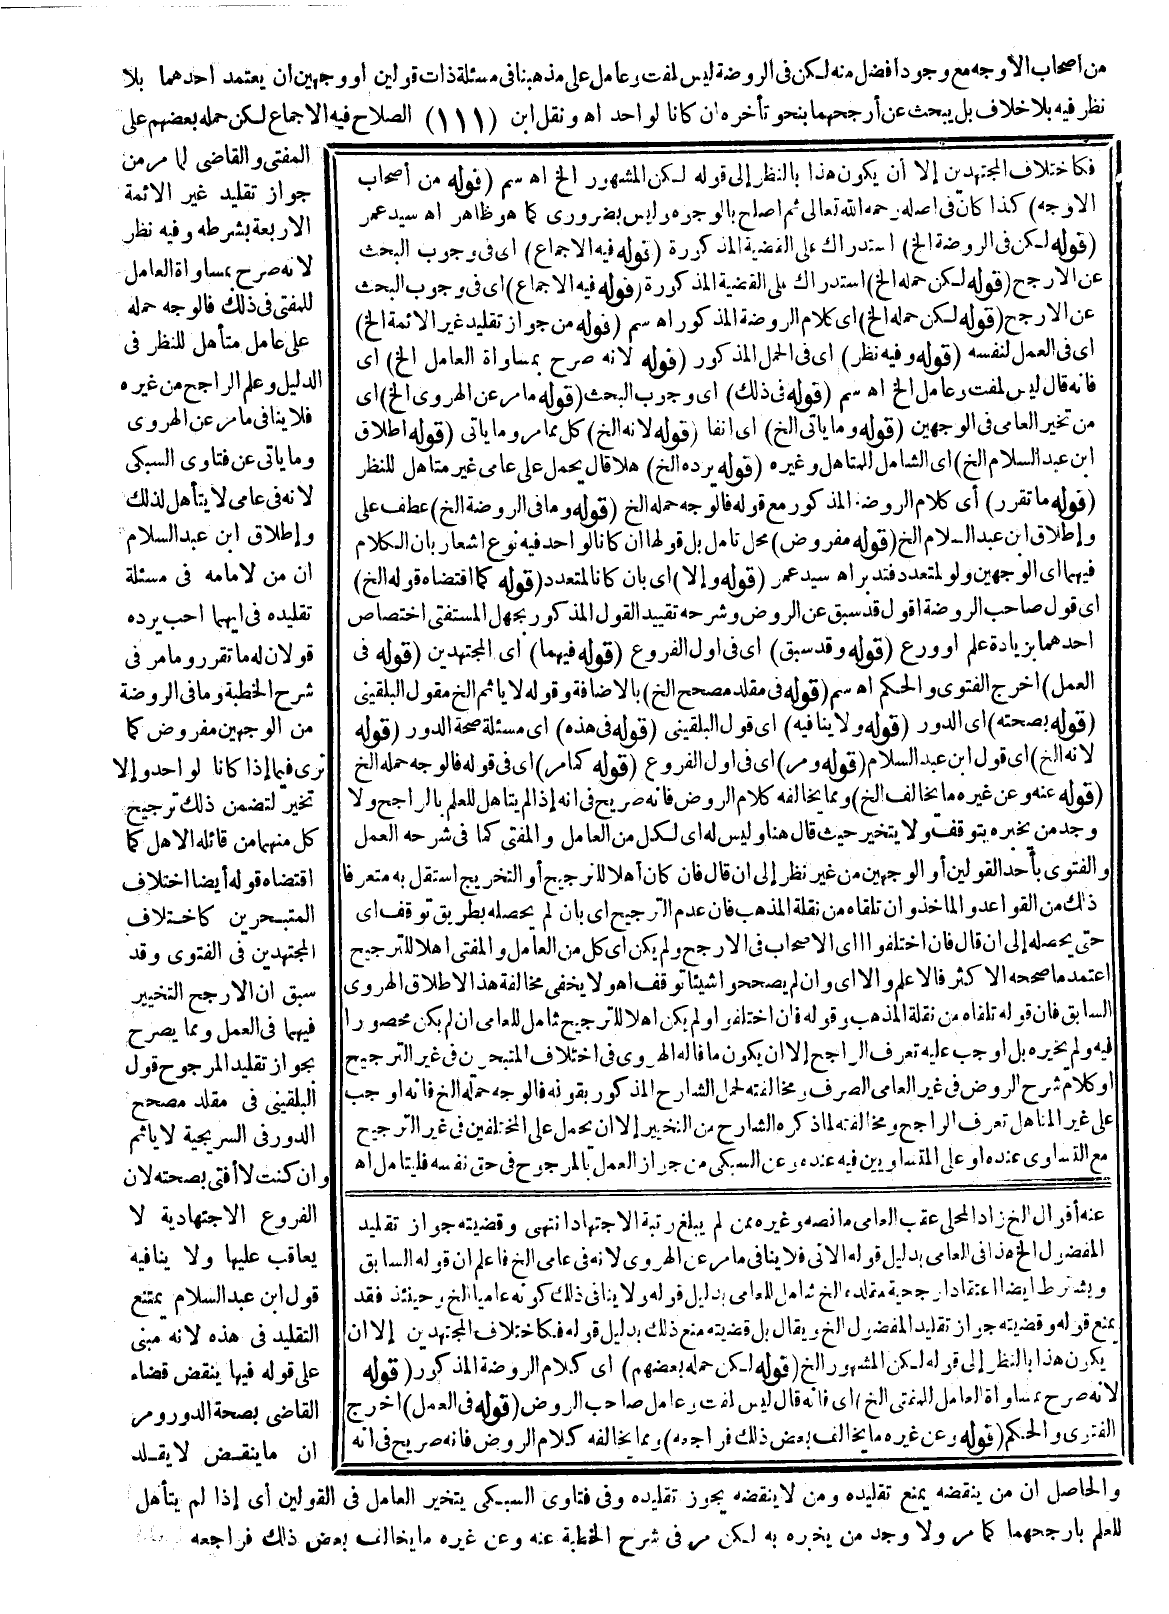 من أصحاب الاوجه مع وجود افضل منه لكن فى الروضة ليس لمفت وعامل على مذهبنا فى مسئلة ذات قولين او وجهين ان يعتمد احدهما بلا
نظر فيه بلا خلاف بل يبحث عن أرجحهما بنحو تأخره ان كانا لواحد اه ونقل ابن (١١١) الصلاح فيه الاجماع لكن حمله بعضهم على
المفتى والقاضى لما مر من
جواز تقليد غير الائمة
الاربعة بشرطه وفيه نظر
لانه صرح بمساواة العامل
للمفتى فى ذلك فالوجه حمله
على عامل متأهل للنظر فى
الدليل وعلم الراجح من غيره
فلا ينافى ما مر عن الهروى
وما يأتى عن فتاوى السبكى
لانه فى عامى لا يتأهل لذلك
وإطلاق ابن عبدالسلام
ان من لامامه فى مسئلة
تقليده فى ايهما احب يرده
قولان له ما تقرر وما مر فى
شرح الخطبة وما فى الروضة
من الوجهين مفروض كما
ترى فيما إذا كانا لواحد وإلا
تخير لتضمن ذلك ترجيح
كل منهما من قائله الاهل كما
اقتضاه قوله أيضا اختلاف
المتبحرين كاختلاف
المجتهدين فى الفتوى وقد
سبق ان الارجح التخيير
فيهما فى العمل ومما يصرح
بجواز تقليد المرجوح قول
البلقينى فى مقلد مصحح
الدور فى السريجية لا يأثم
وان كنت لا أفتى بصحته لان
الفروع الاجتهادية لا
يعاقب عليها ولا ينافيه
قول ابن عبدالسلام يمتنع
التقليد فى هذه لانه مبنى
على قوله فيها ينقض قضاء
القاضى بصحة الدور ومر
ان ما ينقض لا يقلد
والحاصل ان من ينقضه يمنع تقليده ومن لا ينقضه يجوز تقليده وفى فتاوى السبكى يتخير العامل فى القولين أى إذا لم يتأهل
للعلم بارجحهما كما مر ولا وجد من يخبره به لكن مر فى شرح الخطبة عنه وعن غيره ما يخالف بعض ذلك فراجعه
فكاختلاف المجتهدين إلا أن يكون هذا بالنظر إلى قوله لكن المشهور الخ اه سم (قوله من أصحاب
الاوجه) كذا كان فى اصله رحمه الله تعالى ثم اصلح بالوجوه وليس بضرورى كما هو ظاهر اه سيد عمر
(قوله لكن فى الروضة الخ) استدراك على القضية المذكورة (قوله فيه الاجماع) اى فى وجوب البحث
عن الارجح (قوله لكن حمله الخ) استدراك على القضية المذكورة (قوله فيه الاجماع) اى فى وجوب البحث
عن الارجح (قوله لكن حمله الخ) اى كلام الروضة المذكور اه سم (قوله من جواز تقليد غير الائمة الخ)
اى فى العمل لنفسه (قوله وفيه نظر) اى فى الحمل المذكور (قوله لانه صرح بمساواة العامل الخ) اى
فانه قال ليس لمفت وعامل الخ اه سم (قوله فى ذلك) اى وجوب البحث (قوله ما مر عن الهروى الخ) اى
من تخير العامى فى الوجهين (قوله وما يأتى الخ) اى انفا (قوله لانه الخ) كل مما مر وما يأتى (قوله اطلاق
ابن عبدالسلام الخ) اى الشامل للمتاهل وغيره (قوله يرده الخ) هلا قال يحمل على عامى غير متاهل للنظر
(قوله ما تقرر) أى كلام الروضة المذكور مع قوله فالوجه حمله الخ (قوله وما فى الروضة الخ) عطف على
واطلاق ابن عبدالسلام الخ (قوله مفروض) محل تامل بل قولها ان كانا لواحد فيه نوع اشعار بان الكلام
فيهما اى الوجهين ولو لمتعدد فتدبر اه سيد عمر (قوله وإلا) اى بان كانا لمتعدد (قوله كما اقتضاه قوله الخ)
اى قول صاحب الروضة اقول قد سبق عن الروض وشرحه تقييد القول المذكور بجهل المستفتى اختصاص
احدهما بزيادة علم او ورع (قوله وقد سبق) اى فى اول الفروع (قوله فيهما) أى المجتهدين (قوله فى
العمل) اخرج الفتوى والحكم اه سم (قوله فى مقلد مصحح الخ) بالاضافة وقوله لا يأثم الخ مقول البلقينى
(قوله بصحته) اى الدور (قوله ولا ينافيه) اى قول البلقينى (قوله فى هذه) اى مسئلة صحة الدور (قوله
لانه الخ) اى قول ابن عبدالسلام (قوله ومر) اى فى اول الفروع (قوله كما مر) اى فى قوله فالوجه حمله الخ
(قوله عنه وعن غيره ما يخالف الخ) ومما يخالفه كلام الروض فانه صريح فى انه إذا لم يتاهل للعلم بالراجح ولا
وجد من يخبره يتوقف ولا يتخير حيث قال هنا وليس له اى لكل من العامل والمفتى كما فى شرحه العمل
والفتوى بأحد القولين أو الوجهين من غير نظر إلى ان قال فان كان أهلا للترجيح أو التخريج استقل به متعرفا
ذلك من القواعد والماخذ وان تلقاه من نقلة المذهب فان عدم الترجيح اى بان لم يحصله بطريق توقف اى
حتى يحصله إلى ان قال فان اختلفوا اى الاصحاب فى الارجح ولم يكن أى كل من العامل والمفتى اهلا للترجيح
اعتمد ما صححه الاكثر فالاعلم والا اى وان لم يصححوا شيئا توقف اه ولا يخفى مخالفة هذا الاطلاق الهروى
السابق فان قوله تلقاه من نقلة المذهب وقوله فان اختلفوا ولم يكن اهلا للترجيح شامل للعامى ان لم يكن محصورا
فيه ولم يخيره بل اوجب عليه تعرف الراجح إلا ان يكون ما قاله الهروى فى اختلاف المتبحرين فى غير الترجيح
او كلام شرح الروض فى غير العامى الصرف ومخالفته لحمل الشارح المذكور بقوله فالوجه حمله الخ فانه اوجب
على غير المتاهل تعرف الراجح ومخالفته لما ذكره الشارح من التخيير إلا ان يحمل على المختلفين فى غير الترجيح
مع التساوى عنده او على المتساويين فيه عنده وعن السبكى من جواز العمل بالمرجوح فى حق نفسه فليتامل اه
عنه أقوال الخ زاد المحلى عقب العامى ما نصه وغيره ممن لم يبلغ رتبة الاجتهاد انتهى وقضيته جواز تقليد
المفضول الخ هذا فى العامى بدليل قوله الاتى فلا ينافى ما مر عن الهروى لانه فى عامى الخ فاعلم ان قوله السابق
ويشترط ايضا اعتقاد ارجحية مقلده الخ شامل للعامى بدليل قوله ولا ينافى ذلك كونه عاميا الخ وحينئذ فقد
يمنع قوله وقضيته جواز تقليد المفضول الخ ويقال بل قضيته منع ذلك بدليل قوله فكاختلاف المجتهدين إلا ان
يكون هذا بالنظر إلى قوله لكن المشهور الخ (قوله لكن حمله بعضهم) اى كلام الروضة المذكور (قوله
لانه صرح بمساواة العامل للمفتى الخ) اى فانه قال ليس لمفت وعامل صاحب الروض (قوله فى العمل) اخرج
الفتوى والحكم (قوله وعن غيره ما يخالف بعض ذلك فراجعه) ومما يخالفه كلام الروض فانه صريح فى انه